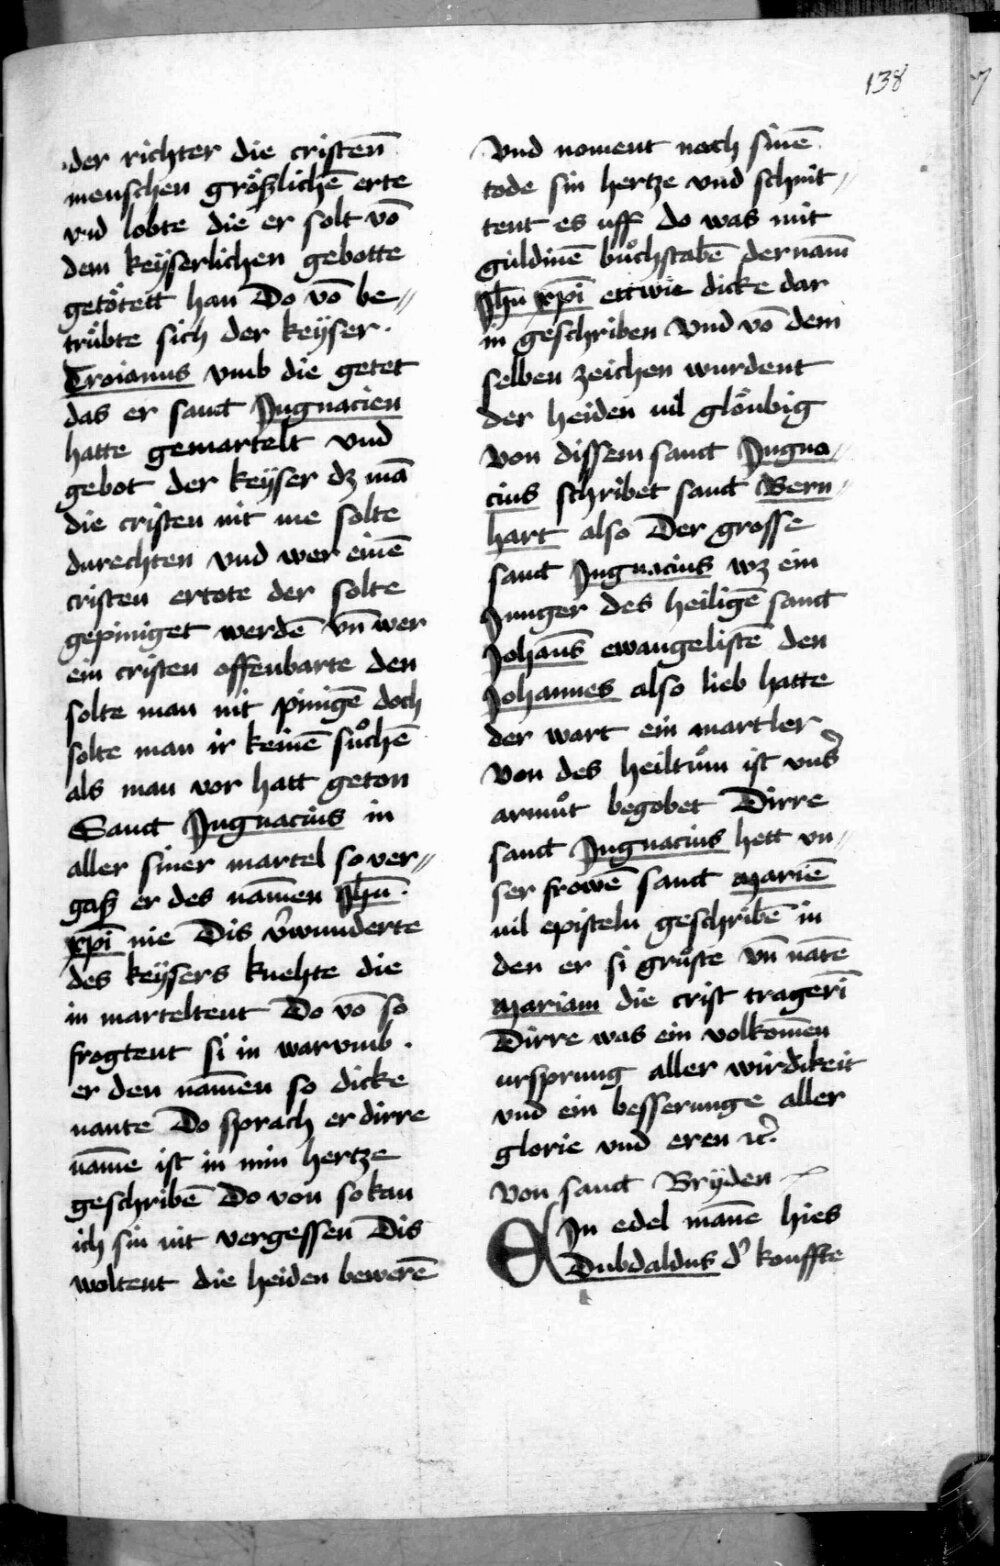 138
der richter die cristen̄
menschen grö̂ßlichē erte
vnd lobte die er solt vō
dem keÿserlichen gebotte
getö̂tett han Do vō be〃
trü̂bte sich der keÿser ·
Troianus vmb die getet
das er sanct Jngnacien
hatte gemartelt vnd
gebot der keÿser dz mā
die cristen nit me solte
durechten vnd wer einē
cristen ertote der solte
gepiniget werdē vn̄ wer
ein cristen offenbarte den
solte man nit pinigē doch
solte man ir keinē sůchē
als man vor hatt geton
Sanct Jngnacius in
aller siner martel so ver〃
gaß er des nam̄en Jhū ·
xp̄i nie Dis v̓wunderte
des keÿsers knehte die
in marteltent Do vō so
frogtent si in warvmb ·
er den nam̄en so dicke
nante Do sprach er dirre
nam̄e ist in min hertze
geschribē Do von so kan
ich sin nit vergessen Dis
woltent die heiden bewerē
Vnd noment noch sinē
tode sin hertze vnd schnit〃
tent es uff do was mit
guldinē bůchstabē der nam̄
Jhū xp̄i ettwie dicke dar
in geschriben Vnd vō dem
selben zeichen wurdent
der heiden vil glö̂ubig
Von dissem sanct Jngna〃
cius schribet sanct Bern〃
hart also Der grosse
sanct Jngnacius wz ein
Junger des heiligē sanct
Johan̄s ewangelistē den
Johannes also lieb hatte
der wart ein martler
Von des heiltům ist vns̓
armůt begobet Dirre
sanct Jngnacius hett vn〃
ser frowē sanct Mariē
vil episteln geschribē in
den er si grůste vn̄ nātē
Mariam die crist tragerī
Dirre was ein volkom̄en
ursprung aller wirdikeit
vnd ein besserunge aller
glorie vnd eren ꝛc̓.
Von sanct Brÿden
EIn edel man̄e hies
Dubdaldus d̓ kouffte